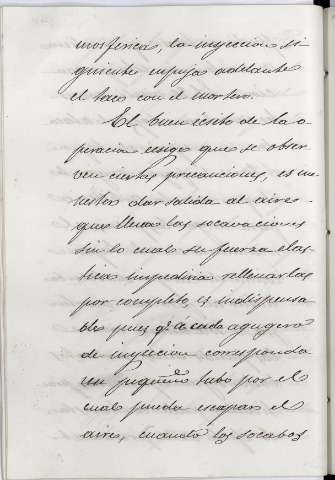 mosferica, la inyeccion si
guiente empuja adelante
el taco con el mortero.
El buen éxito de la o
peracion exige que se obser
ven ciertas precauciones, es me
nester dar salida al aire
que llena las socavaciones
sin lo cual su fuerza elas
tica impediria rellenarlas
por completo, es indispensa
ble pues qe á cada agugero
de inyeccion corresponda
un pequeño tubo por el
cual pueda escapar el
aire, cuando los socabos